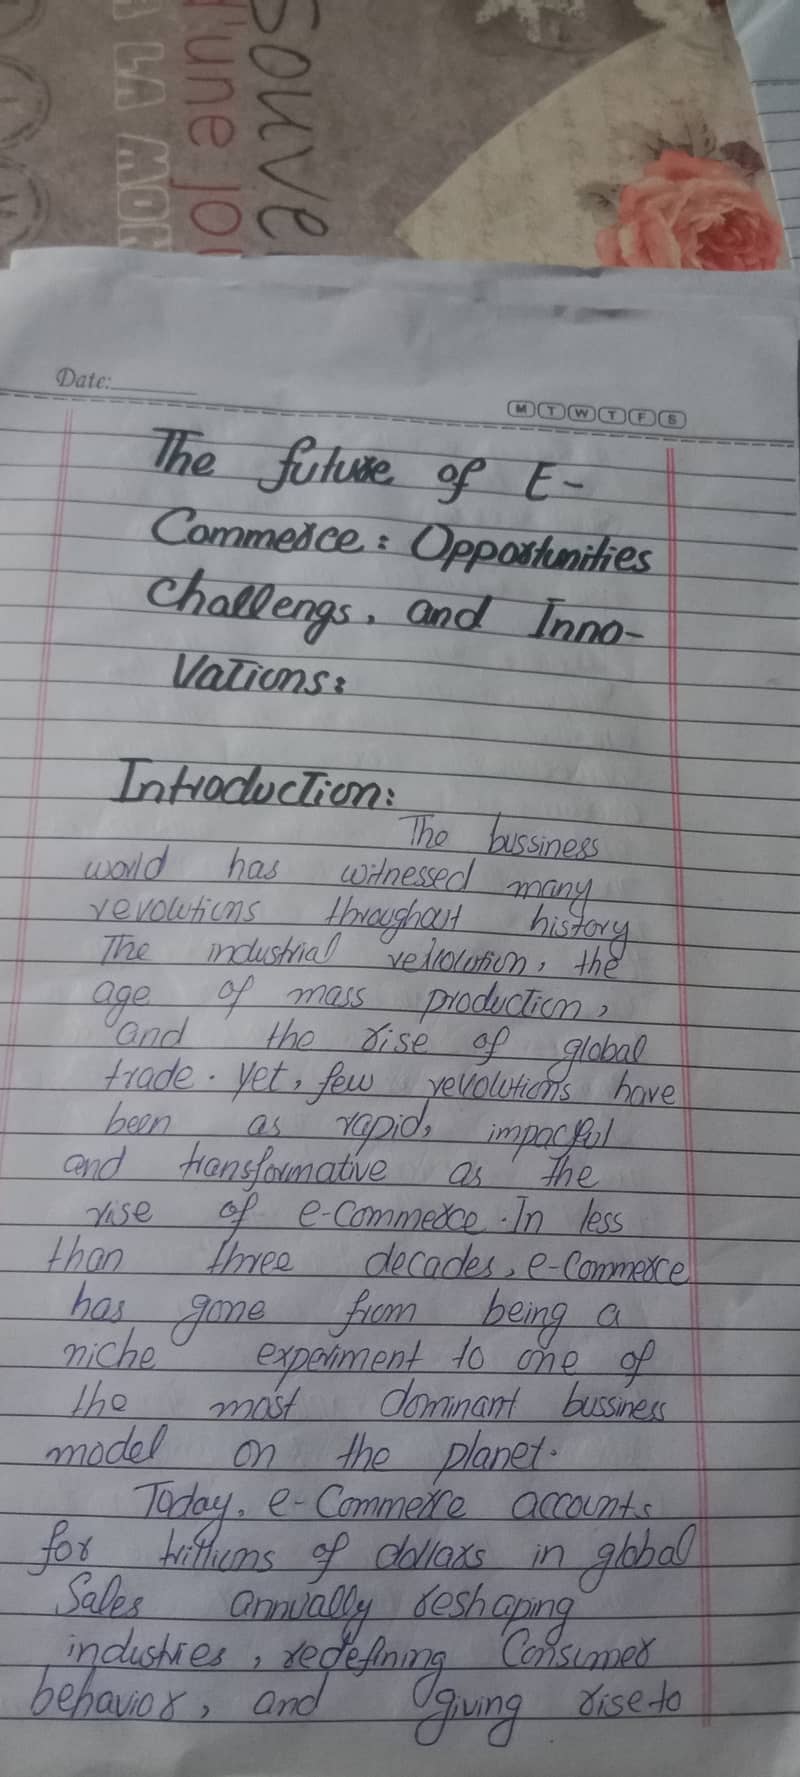 Souve
d'une jou
A LA MON
Date:
M T W T F S
The future of E-
Commerce: Opportunities
Challengs, and Inno-
Vations:
Introduction:
The bussiness
world has witnessed many
revolutions throughout history
The industrial revolution, the
age of mass production,
and the rise of global
trade. Yet, few revolutions have
been as rapid, impactful
and transformative as the
rise of e-Commerce. In less
than three decades, e-Commerce
has gone from being a
niche experiment to one of
the most dominant bussiness
model on the planet.
Today, e-Commerce accounts
for trillions of dollars in global
Sales annually reshaping
industries, redefining Consumer
behavior, and giving rise to